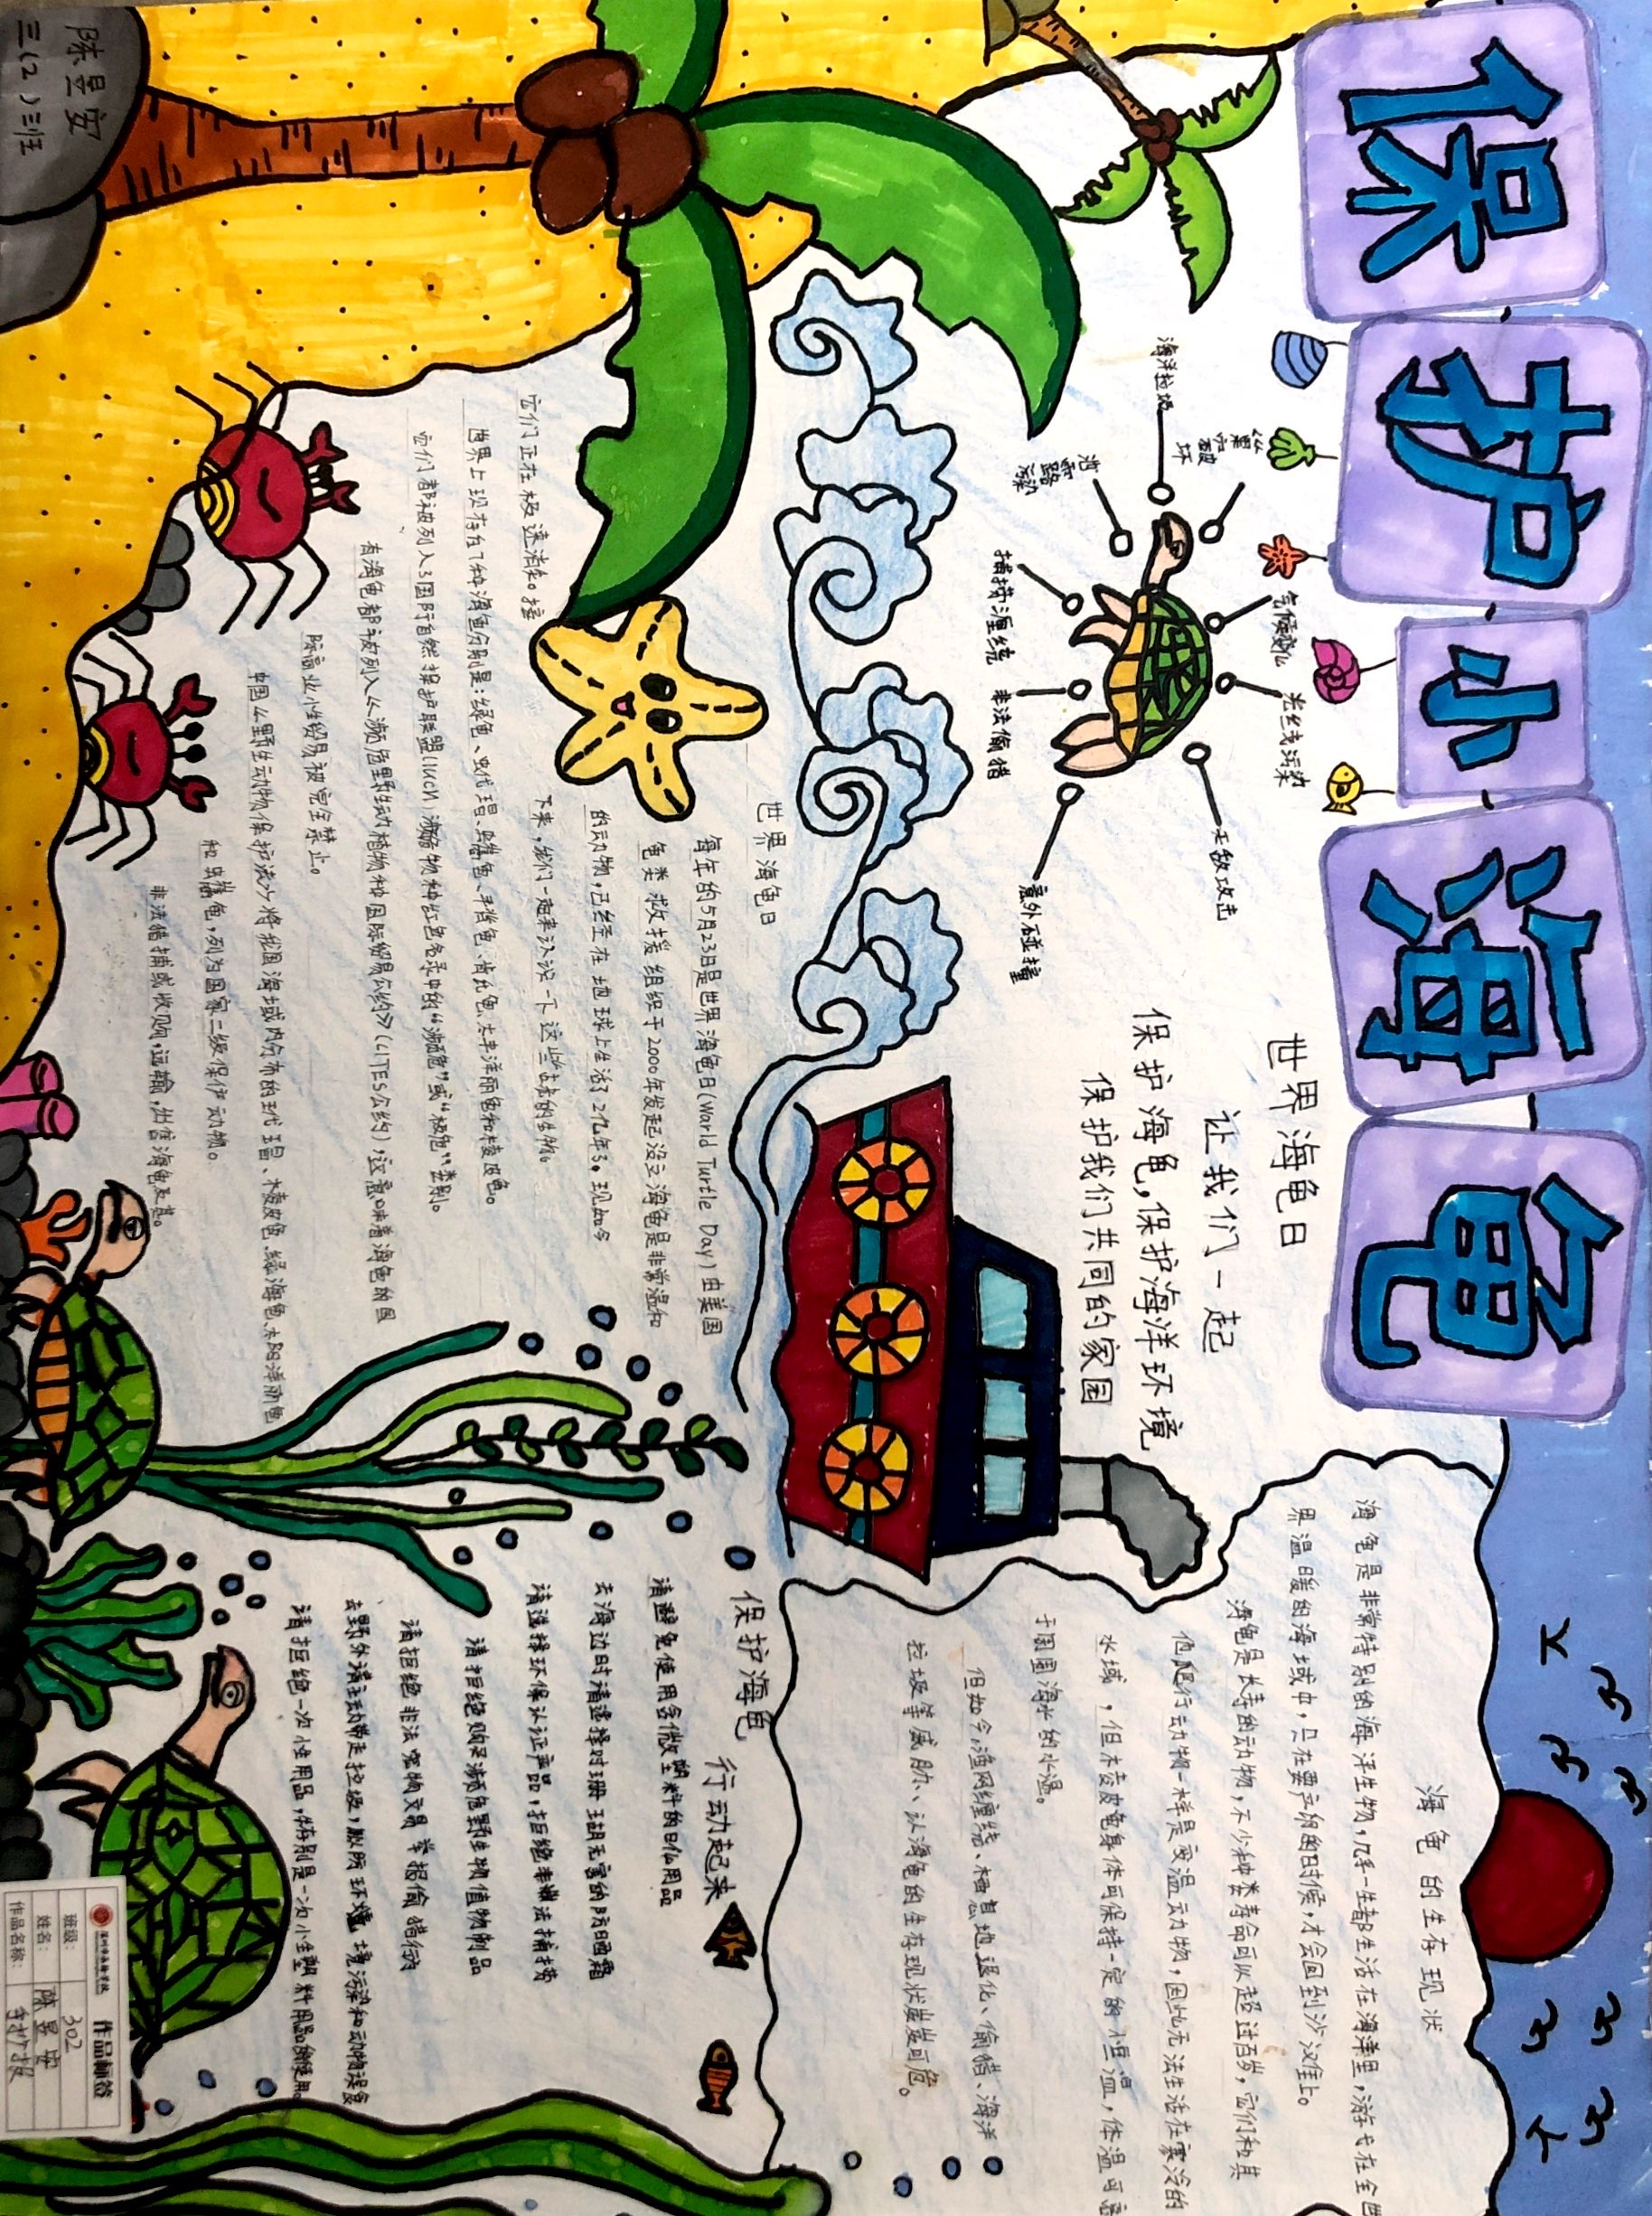 保护小海龟
海洋垃圾
气候变化
光线污染
天敌攻击
捕捞渔线
非法偷猎
意外碰撞
世界海龟日
让我们一起
保护海龟,保护海洋环境
保护我们共同的家园
海龟的生存现状
海龟是非常特别的海洋生物,几乎一生都生活在海洋里,游弋在全世
界温暖的海域中,只在要产卵的时候,才会回到沙汉住上。
海龟是长寿的动物,不少种类寿命可以超过百岁,它们和其
他爬行动物一样是变温动物,因此无法生活在寒冷的
水域,但棱皮龟身体可保持一定的恒温,体温可高
于周围海水的水温。
但如今,渔网缠绕、栖息地退化、偷猎、海洋
垃圾等威胁、认海龟的生存现状岌岌可危。
世界海龟日
每年的5月23日是世界海龟日(World Turtle Day)由美国
龟类救援组织于2000年发起没立海龟是非常温和
的动物,已经在地球上生活了2亿年了。现如今
它们正在极速消失。接
下来,我们一起来认识一下这些古老的生物。
世界上现存在7种海龟分别是:绿龟、玳瑁、蠵龟、平背龟、肯氏龟、太平洋丽龟和棱皮龟。
它们都被列入了国际自然保护联盟(IUCN)濒危物种红色名录中的“濒危”或“极危”类别。
有海龟都被列入《濒危野生动植物种国际贸易公约》(CITES公约),这意味着海龟的国
际商业性贸易被完全禁止。
中国《野生动物保护法》将我国海域内分布的玳瑁、棱皮龟、绿海龟、太平洋丽龟
和蠵龟,列为国家二级保护动物。
非法猎捕或收购,运输,出售海龟及其。
保护海龟 行动起来
请避免使用含微塑料的日化用品
去海边时请选择对珊瑚无害的防晒霜
请选择环保认证产品,拒绝非法捕捞
请拒绝购买濒危野生物值物制品
请拒绝非法宠物交易 举报偷猎行为
去野外请主动带走垃圾,以防环境污染和动物误食
请拒绝一次性用品,特别是一次小生塑料用品的使用。
陈昱安
三(2)班
作品标签
班级: 302
姓名: 陈昱安
作品名称: 手抄报